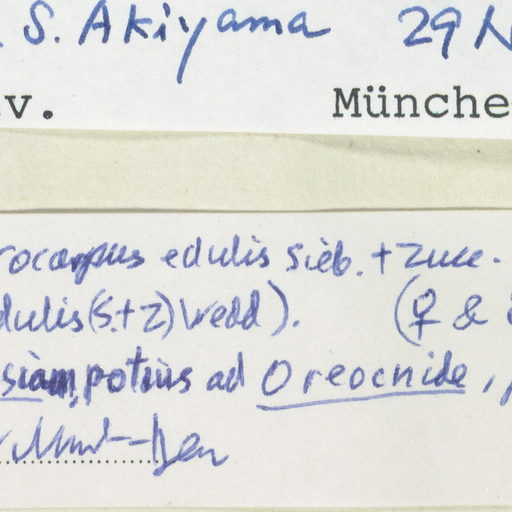 . S. Akiyama 29 N
v. Münche
rocarpus edulis Sieb. + Zucc.
dulis (S. + Z) Wedd). (♀ &
siam, potius ad Oreocnide,